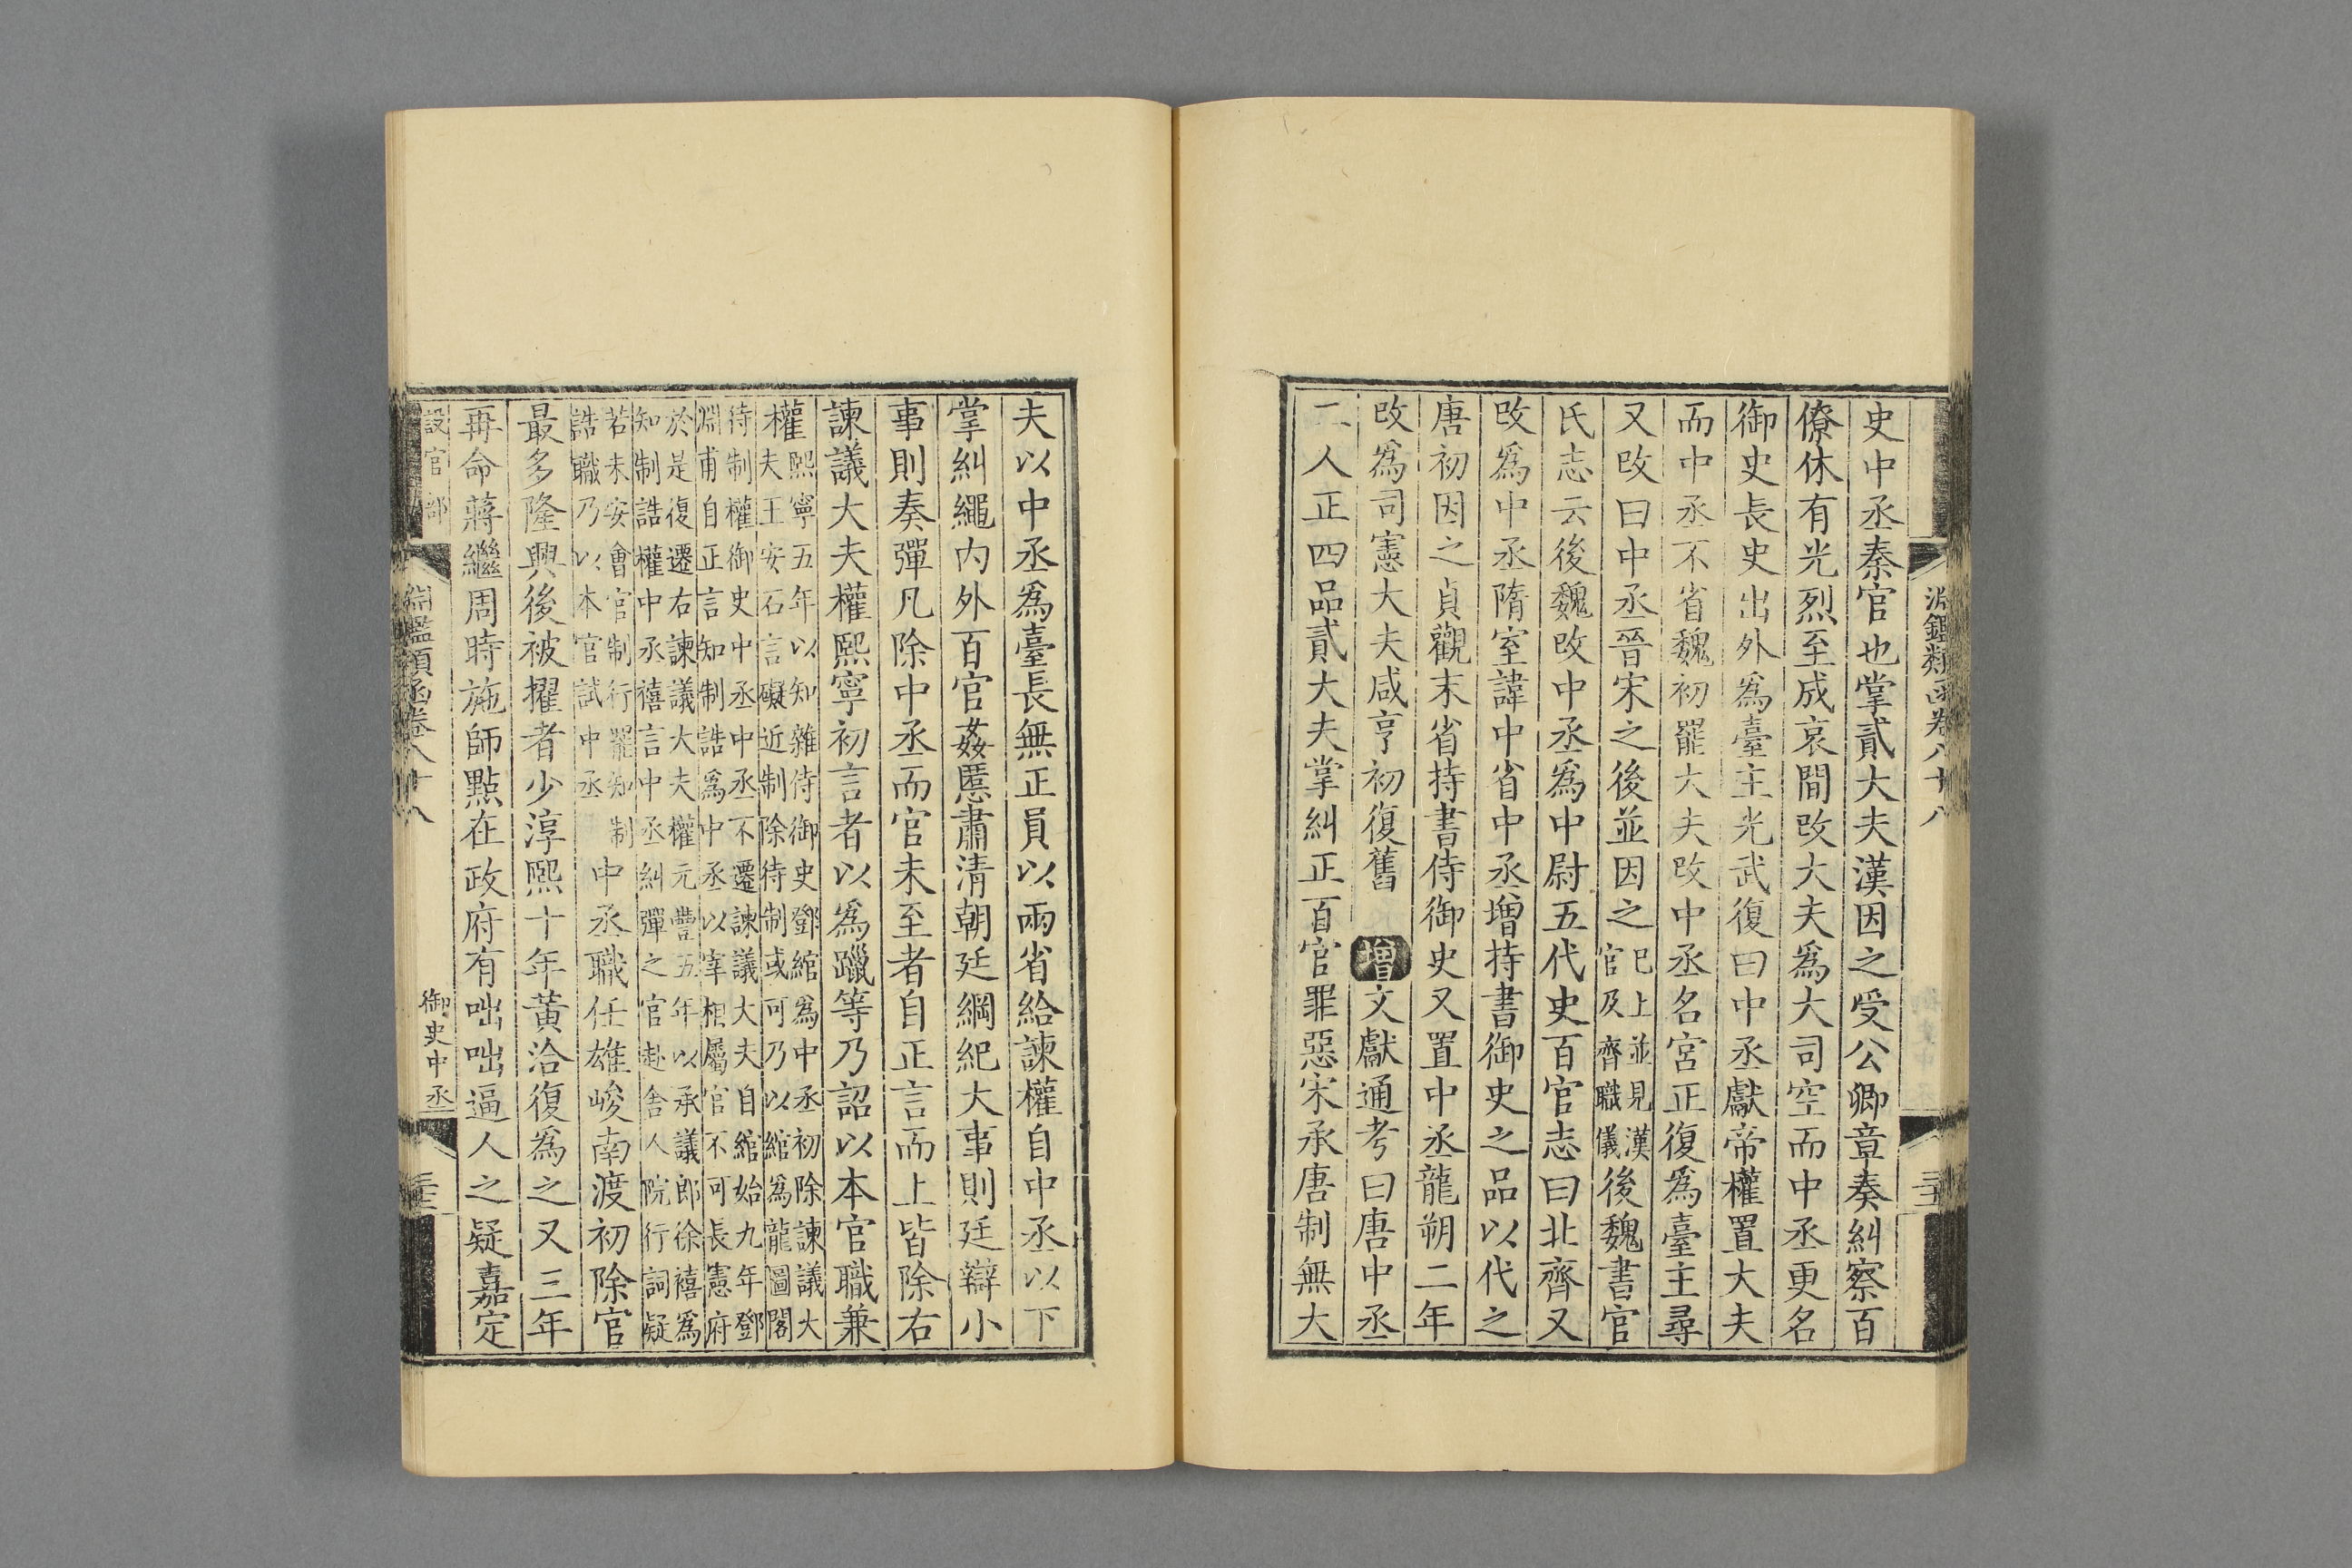 淵鑑類函卷八十八
史中丞秦官也掌貳大夫漢因之受公卿章奏糾察百
僚休有光烈至成哀間改大夫爲大司空而中丞更名
御史長史出外爲臺主光武復曰中丞獻帝權置大夫
而中丞不省魏初罷大夫改中丞名宮正復爲臺主尋
又改曰中丞晉宋之後並因之巳上並見漢官及齊職儀後魏書官
氏志云後魏改中丞爲中尉五代史百官志曰北齊又
改爲中丞隋室諱中省中丞增持書御史之品以代之
唐初因之貞觀末省持書侍御史又置中丞龍朔二年
改爲司憲大夫咸亨初復舊 增文獻通考曰唐中丞
二人正四品貳大夫掌糾正百官罪惡宋承唐制無大
夫以中丞爲臺長無正員以兩省給諫權自中丞以下
掌糾繩内外百官姦慝肅清朝廷綱紀大事則廷辯小
事則奏彈凡除中丞而官未至者自正言而上皆除右
諫議大夫權熙寧初言者以爲躐等乃詔以本官職兼
權熙寧五年以知雜侍御史鄧綰爲中丞初除諫議大
夫王安石言礙近制除待制或可乃以綰爲龍圖閣
待制權御史中丞中丞不遷諫議大夫自綰始九年鄧
潤甫自正言知制誥爲中丞以宰相屬官不可長憲府
於是復遷右諫議大夫權元豐五年以承議郎徐禧爲
知制誥權中丞禧言中丞糾彈之官赴舍人院行詞疑
若未安會官制行罷知制
誥職乃以本官試中丞中丞職任雄峻南渡初除官
最多隆興後被擢者少淳熙十年黃洽復爲之又三年
再命蔣繼周時施師點在政府有咄咄逼人之疑嘉定
設官部
淵鑑類函卷八十八
御史中丞